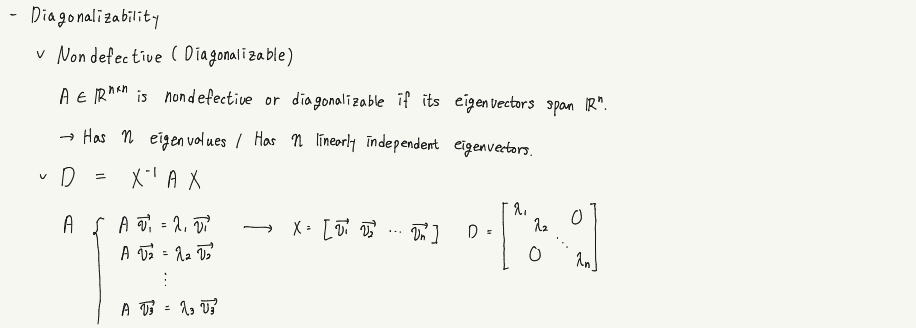 - Diagonalizability
v Nondefective (Diagonalizable)
A ∈ ℝⁿˣⁿ is nondefective or diagonalizable if its eigenvectors span ℝⁿ.
→ Has n eigenvalues / Has n linearly independent eigenvectors.
v D = X⁻¹ A X
A { A v⃗₁ = λ₁ v⃗₁ → X = [v⃗₁ v⃗₂ ⋯ v⃗ₙ] D = [λ₁ λ₂ 0 0 ⋱ λₙ]
A v⃗₂ = λ₂ v⃗₂
⋮
A v⃗₃ = λ₃ v⃗₃